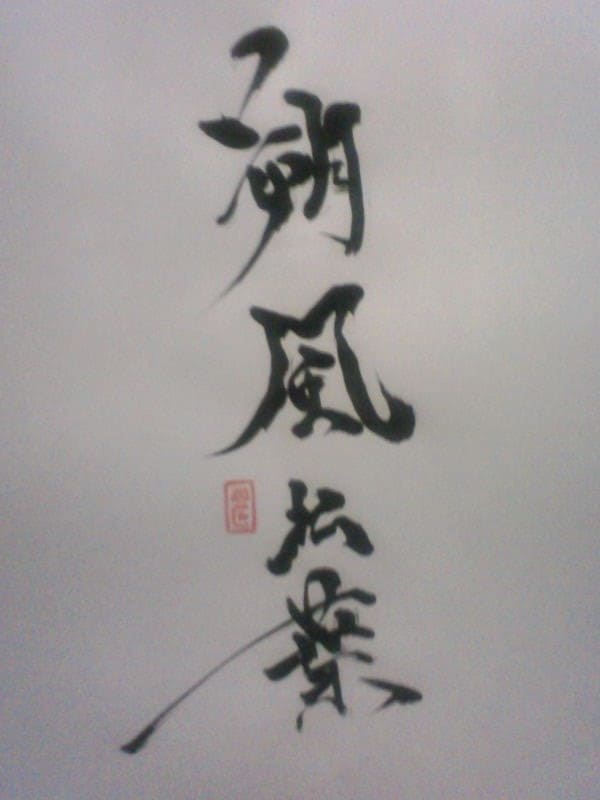 朔風払葉